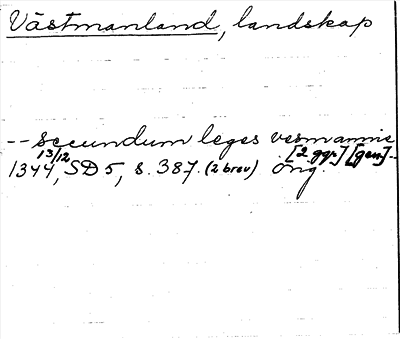 Västmanland, landskap
-- secundum leges vesmannie
[2 ggr] [gen]--
13/12
1344, SD 5, s. 387. (2 brev) orig.